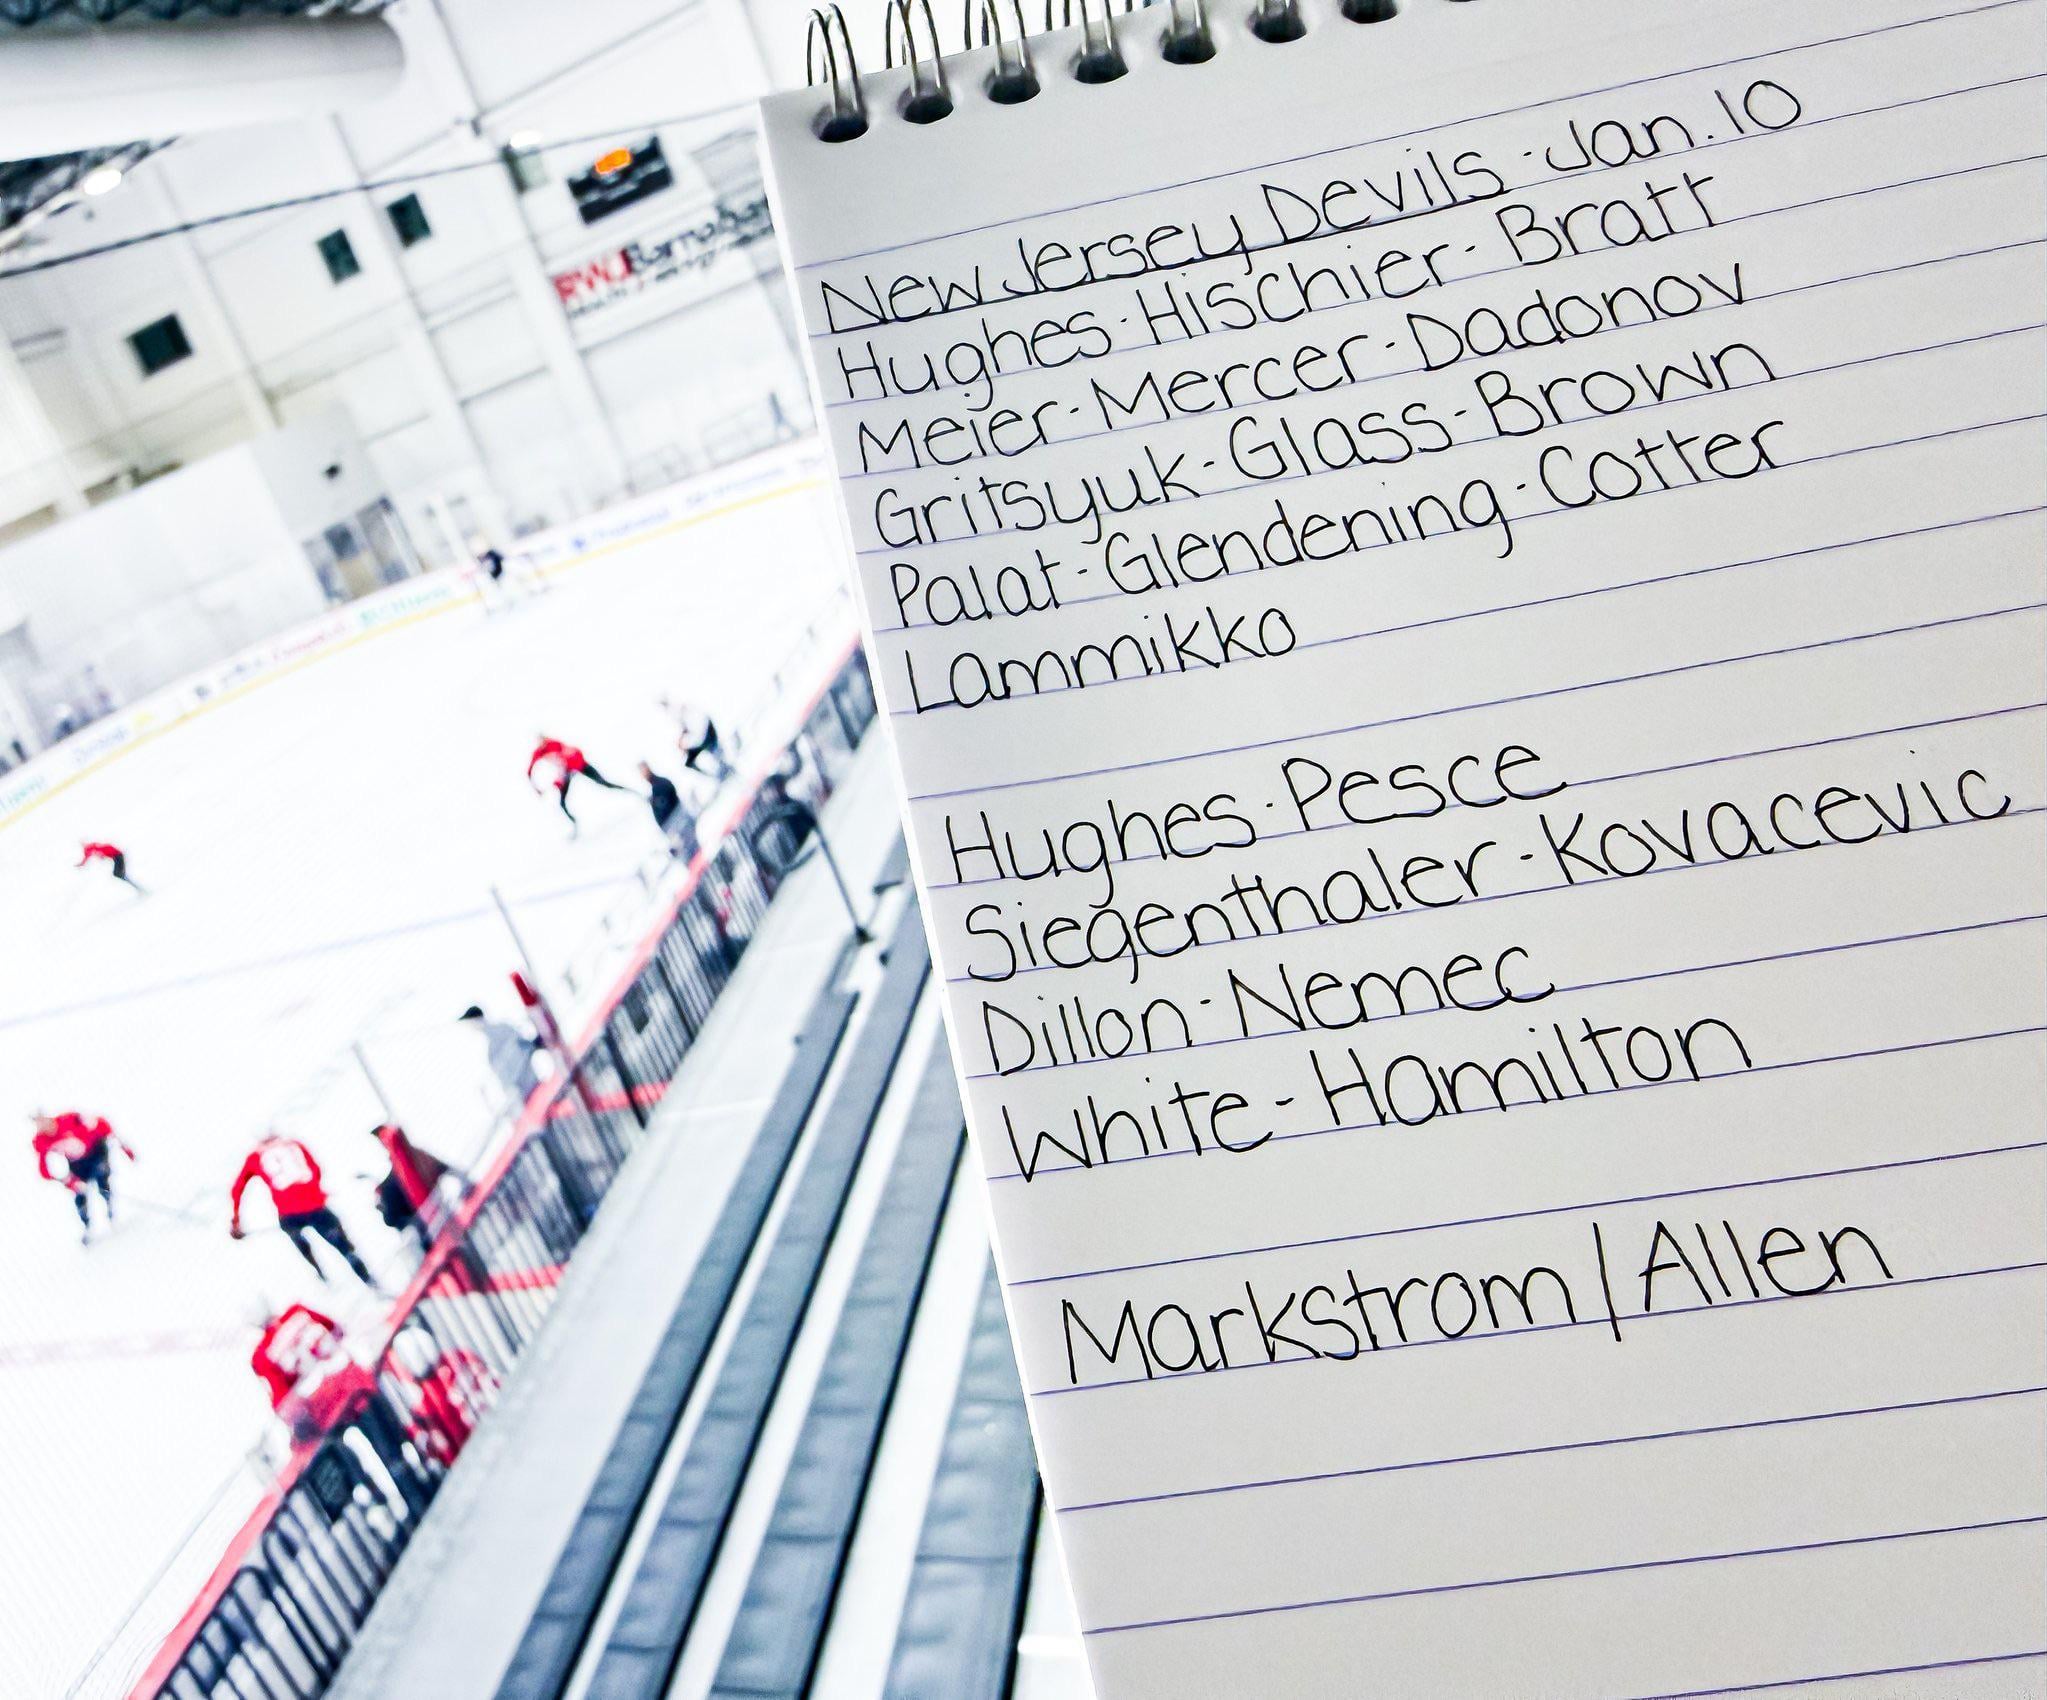 RWJBarnabas
New Jersey Devils · Jan. 10
Hughes · Hischier · Bratt
Meier · Mercer · Dadonov
Gritsyuk · Glass · Brown
Palat · Glendening · Cotter
Lammikko
Hughes · Pesce
Siegenthaler · Kovacevic
Dillon · Nemec
White - Hamilton
Markstrom / Allen